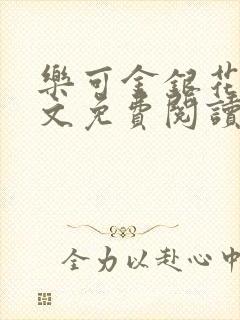 樂可金銀花
文免費閱讀
全力以赴心中